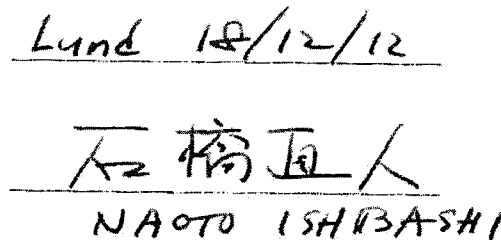 Lund 18/12/12
石橋直人
NAOTO ISHIBASHI